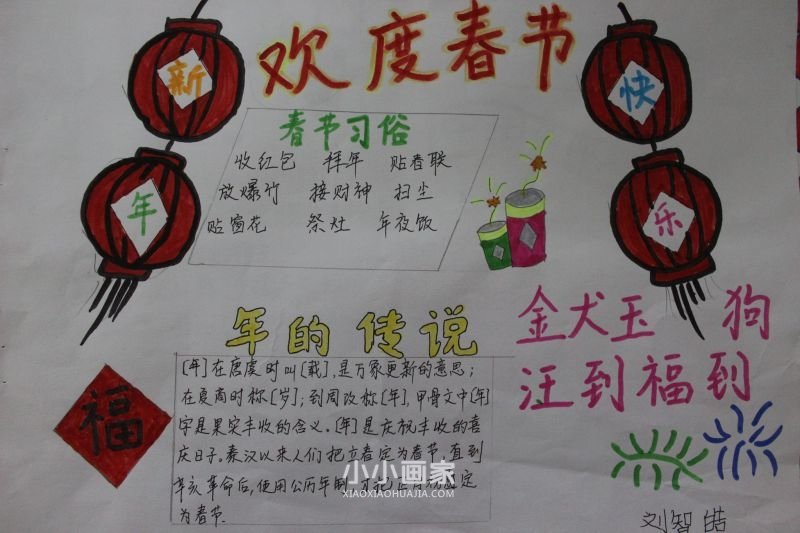 欢度春节
新年
快乐
春节习俗
收红包 拜年 贴春联
放爆竹 接财神 扫尘
贴窗花 祭灶 年夜饭
年的传说
[年]在唐虞时叫[载],是万家更新的意思;
在夏商时称[岁];到周改称[年],甲骨文中[年]
字是果实丰收的含义.[年]是庆祝丰收的喜
庆日子.秦汉以来人们把立春定为春节.直到
辛亥革命后,使用公历年制,才把正月初定
为春节.
福
金犬玉 狗
汪到福到
刘智皓
小小画家
XIAOXIAOHUAJIA.COM